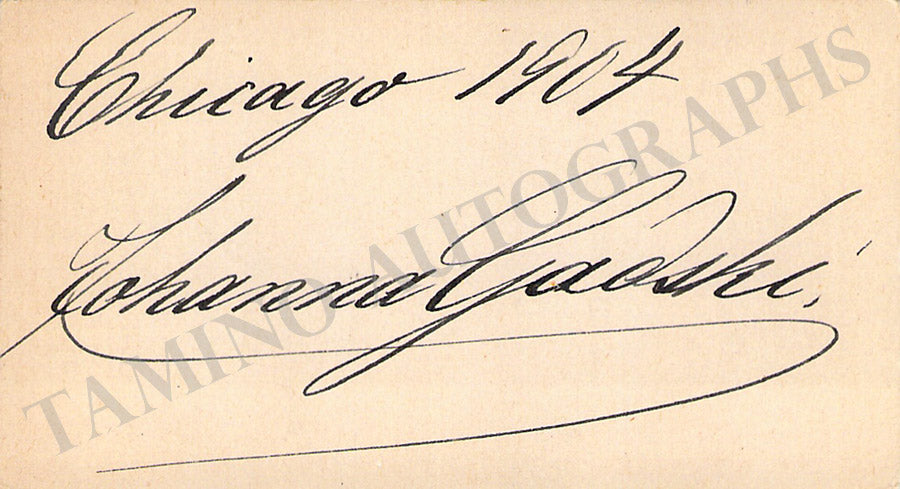 Chicago 1904
Johanna Gadski.
TAMINO AUTOGRAPHS